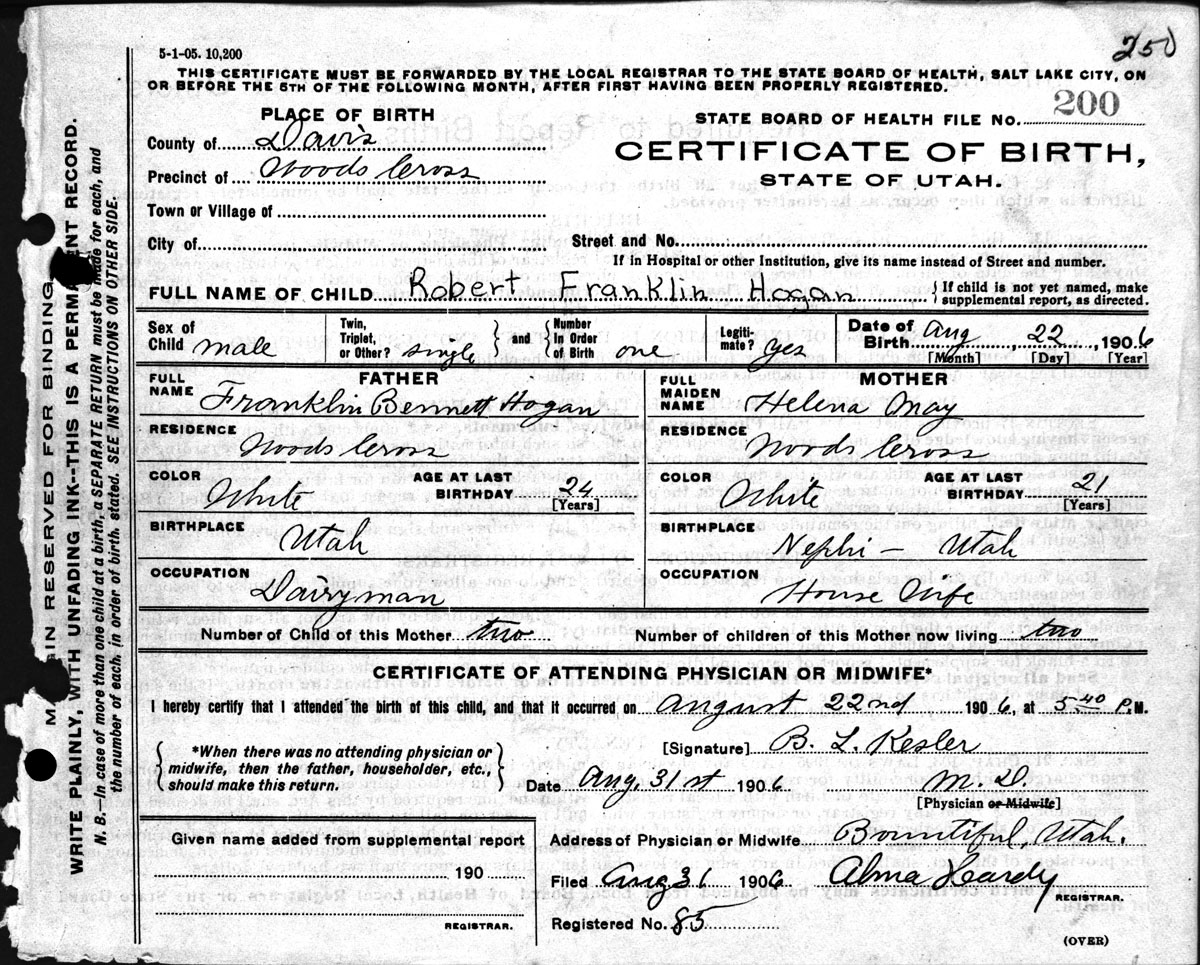 250
5-1-05. 10,200
THIS CERTIFICATE MUST BE FORWARDED BY THE LOCAL REGISTRAR TO THE STATE BOARD OF HEALTH, SALT LAKE CITY, ON
OR BEFORE THE 5TH OF THE FOLLOWING MONTH, AFTER FIRST HAVING BEEN PROPERLY REGISTERED.
PLACE OF BIRTH
STATE BOARD OF HEALTH FILE NO. 200
County of Davis
CERTIFICATE OF BIRTH,
Precinct of Woods Cross
STATE OF UTAH.
Town or Village of
City of
Street and No.
If in Hospital or other Institution, give its name instead of Street and number.
FULL NAME OF CHILD Robert Franklin Hogan
{If child is not yet named, make
supplemental report, as directed.
Sex of
Child male
Twin,
Triplet,
or Other? single
} and {
Number
In Order
of Birth one
Legiti-
mate? yes
Date of
Birth Aug 22, 1906
[Month] [Day] [Year]
FATHER
FULL
NAME Franklin Bennett Hogan
RESIDENCE Woods Cross
COLOR White
AGE AT LAST
BIRTHDAY 24
[Years]
BIRTHPLACE Utah
OCCUPATION Dairyman
MOTHER
FULL
MAIDEN
NAME Helena May
RESIDENCE Woods Cross
COLOR White
AGE AT LAST
BIRTHDAY 21
[Years]
BIRTHPLACE Nephi - Utah
OCCUPATION House Wife
Number of Child of this Mother two
Number of children of this Mother now living two
CERTIFICATE OF ATTENDING PHYSICIAN OR MIDWIFE*
I hereby certify that I attended the birth of this child, and that it occurred on August 22nd 1906, at 5 40 P.M.
{*When there was no attending physician or
midwife, then the father, householder, etc.,
should make this return.}
[Signature] B. L. Kesler
Date Aug. 31st 1906 M.D.
[Physician or Midwife]
Given name added from supplemental report
190
REGISTRAR.
Address of Physician or Midwife Bountiful, Utah.
Filed Aug 31 1906 Alma Hardy
REGISTRAR.
Registered No. 85
(OVER)
MARGIN RESERVED FOR BINDING
WRITE PLAINLY, WITH UNFADING INK--THIS IS A PERMANENT RECORD.
N. B. In case of more than one child at a birth, a SEPARATE RETURN must be made for each, and
the number of each, in order of birth, stated. SEE INSTRUCTIONS ON OTHER SIDE.